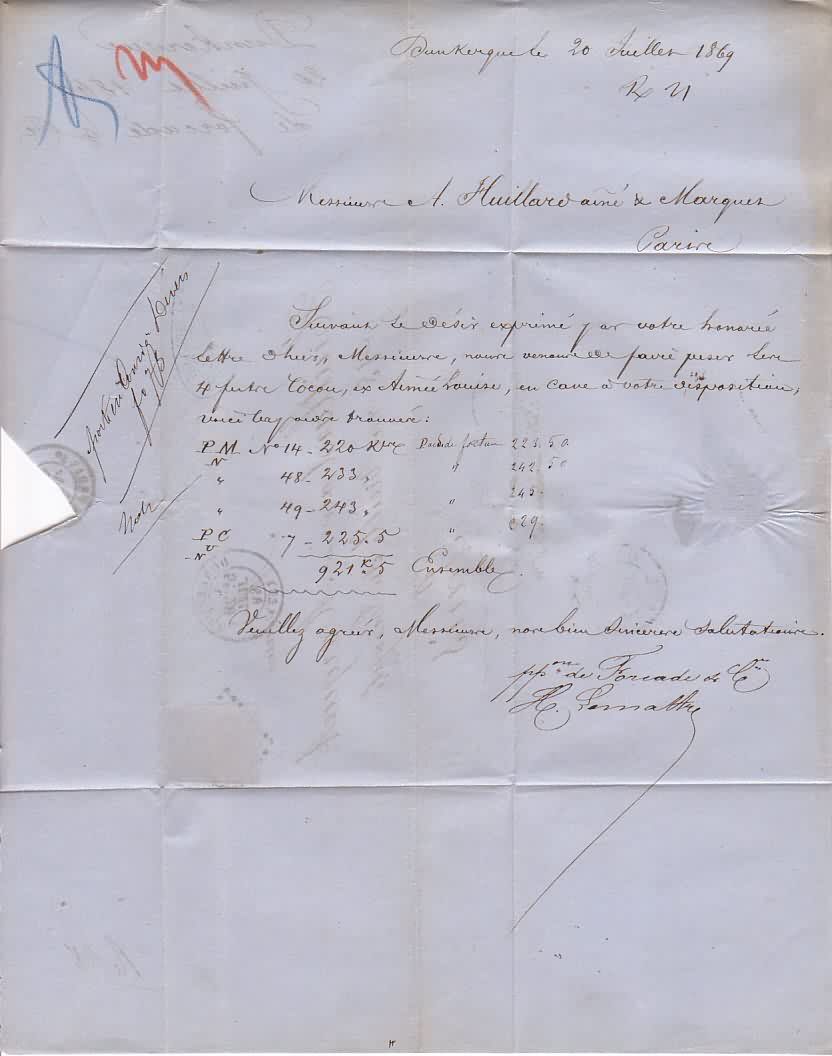 Dunkerque le 20 Juillet 1869
R N
Messieurs A. Huillard ainé & Marques
Paris
Suivant le désir exprimé par votre honorée
lettre d'hier, Messieurs, nous venons de faire peser les
4 futs Cocou, ex Aimée Louise, en cave à votre disposition,
voici les poids trouvés:
P M No 14 - 220 Poids de 223.50
N
" 48 - 233 " " 242.50
" 49 - 243 " " 245.
P C 7 - 225.5 " 229.
N
921 k 5 Ensemble.
Veuillez agréer, Messieurs, nos bien sincères salutations.
ppon de Forcade & Cie
H. Lemattre